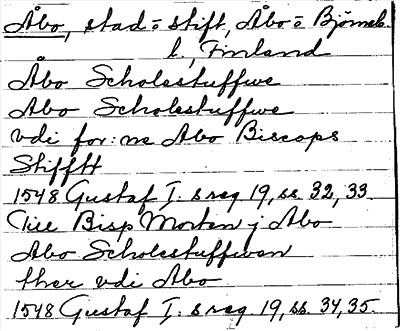 Åbo, stad o stift, Åbo o Björneb.
l., Finland
Åbo Scholestuffwe
Abo Scholestuffwe
vdi for:ne Abo Biscops
Stifftt
1548 Gustaf I. s reg 19, ss. 32, 33.
Till Bisp Morten j Abo
Abo Scholestuffwan
ther vdi Abo
1548 Gustaf I. s reg 19, ss. 34, 35.